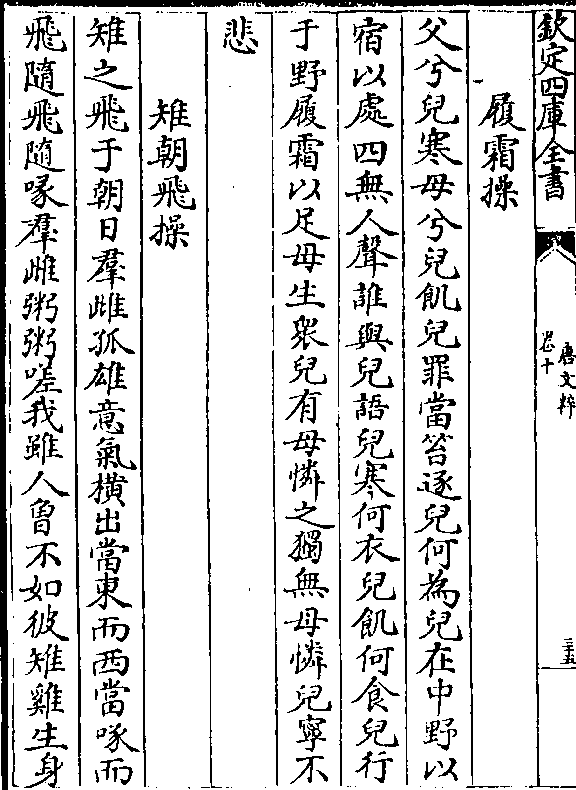 欽定四庫全書
唐文粹
卷十
三十五
履霜操
父兮兒寒母兮兒飢兒罪當笞逐兒何為兒在中野以
宿以處四無人聲誰與兒語兒寒何衣兒飢何食兒行
于野履霜以足母生衆兒有母憐之獨無母憐兒寧不
悲
雉朝飛操
雉之飛于朝日羣雌孤雄意氣橫出當東而西當啄而
飛隨飛隨啄羣雌粥粥嗟我雖人曾不如彼雉雞生身